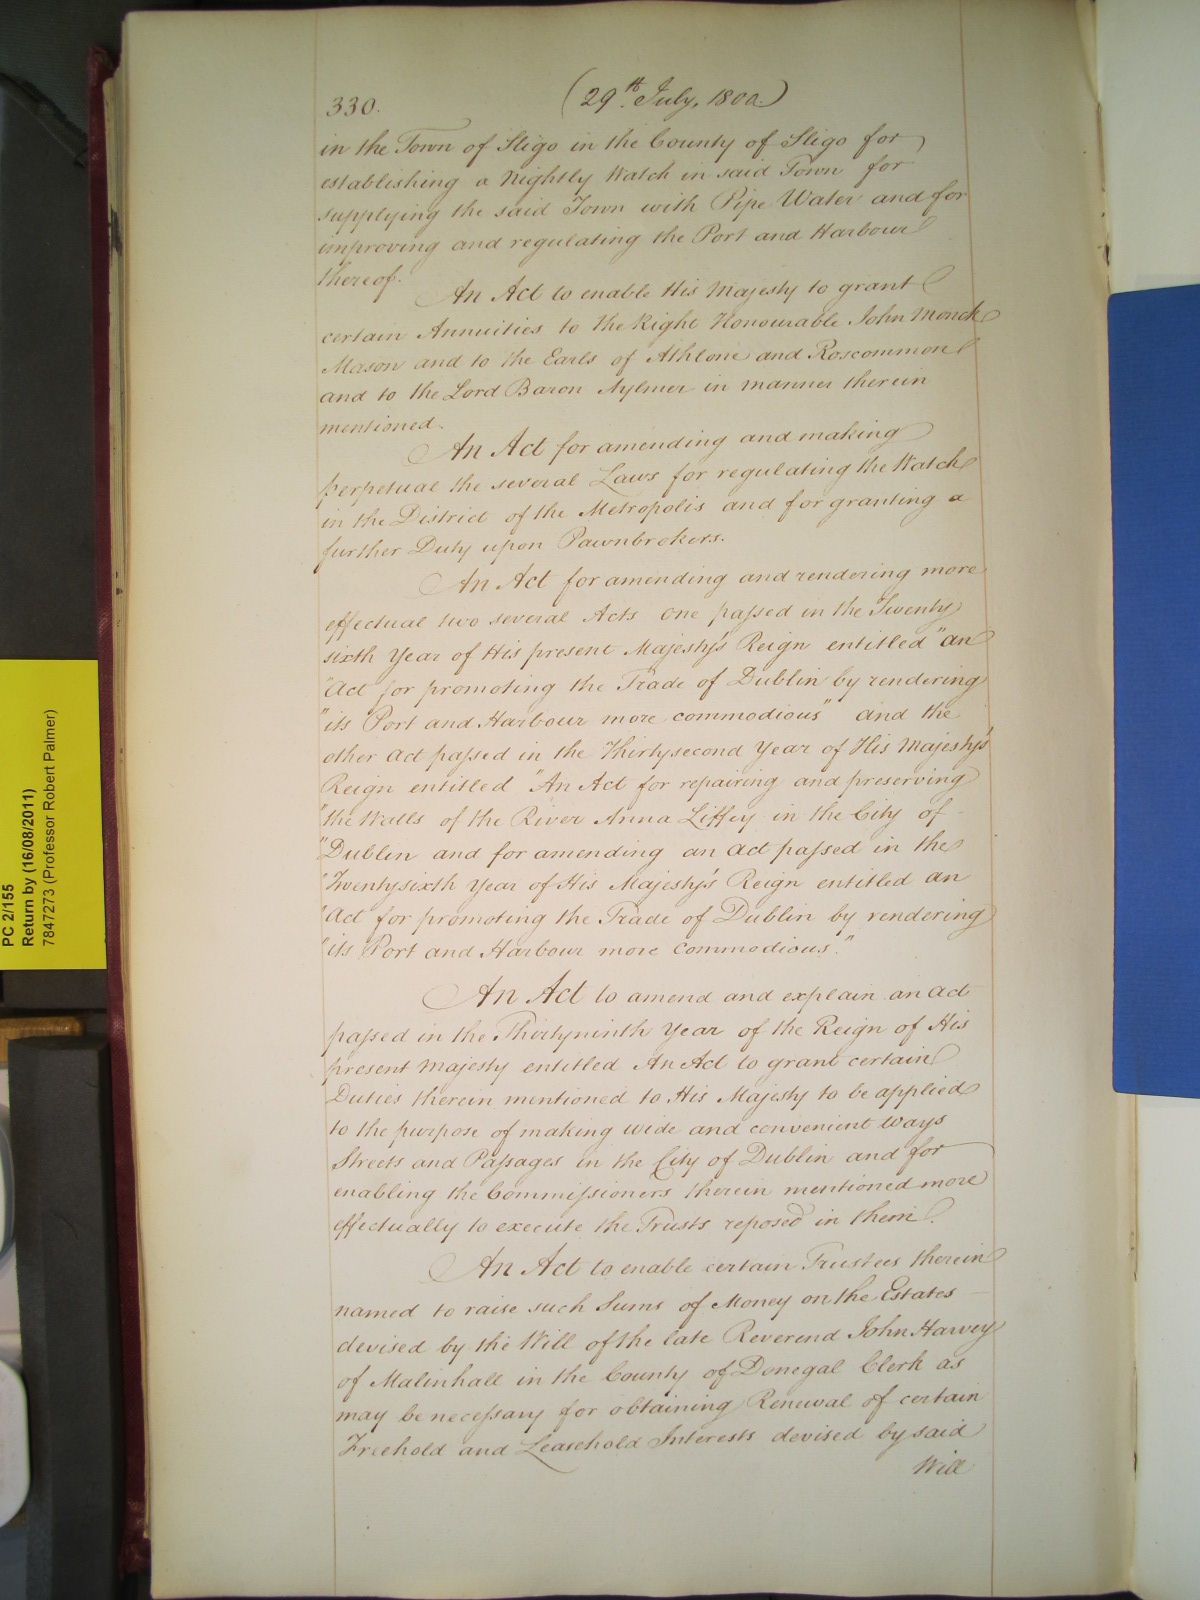 330.
(29th July, 1800.)
in the Town of Sligo in the County of Sligo for
establishing a Nightly Watch in said Town for
supplying the said Town with Pipe Water and for
improving and regulating the Port and Harbour
thereof.
An Act to enable His Majesty to grant
certain Annuities to the Right Honourable John Monck
Mason and to the Earls of Athlone and Roscommon
and to the Lord Baron Aylmer in manner therein
mentioned.
An Act for amending and making
perpetual the several Laws for regulating the Watch
in the District of the Metropolis and for granting a
further Duty upon Pawnbrokers.
An Act for amending and rendering more
effectual two several Acts one passed in the Twenty
sixth Year of His present Majesty's Reign entitled "an
"Act for promoting the Trade of Dublin by rendering
"its Port and Harbour more commodious" and the
other Act passed in the Thirtysecond Year of His Majesty's
Reign entitled "An Act for repairing and preserving
"the Walls of the River Anna Liffey in the City of
"Dublin and for amending an Act passed in the
"Twentysixth Year of His Majesty's Reign entitled an
"Act for promoting the Trade of Dublin by rendering
"its Port and Harbour more commodious."
An Act to amend and explain an Act
passed in the Thirtyninth Year of the Reign of His
present Majesty entitled An Act to grant certain
Duties therein mentioned to His Majesty to be applied
to the purpose of making wide and convenient Ways
Streets and Passages in the City of Dublin and for
enabling the Commissioners therein mentioned more
effectually to execute the Trusts reposed in them.
An Act to enable certain Trustees therein
named to raise such Sums of Money on the Estates
devised by the Will of the late Reverend John Harvey
of Malinhall in the County of Donegal Clerk as
may be necessary for obtaining Renewal of certain
Freehold and Leasehold Interests devised by said
Will
PC 2/155
Return by (16/08/2011)
7847273 (Professor Robert Palmer)